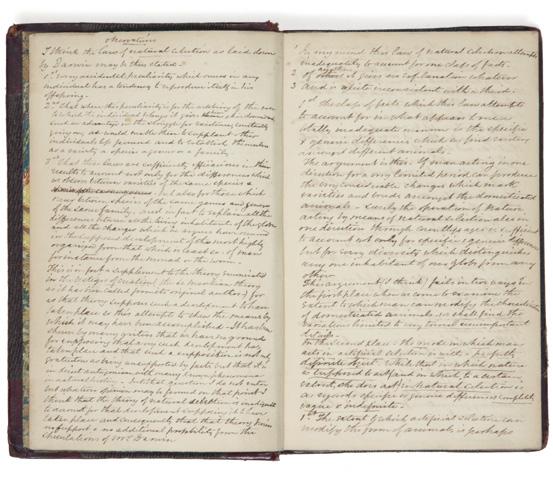 Observations
I think the laws of natural selection as laid down
by Darwin may be thus stated
1st Every accidental peculiarity which occurs in any
individual has a tendency to reproduce itself in his
offspring.
2nd That when this peculiarity is for the wellbeing of the race
to which the individual belongs it gives
and an advantage in the struggle for existence constantly
going on, as would enable them to supplant other
individuals less favoured and to establish themselves
as a variety a species a genus or a family.
3rd That these laws are sufficiently efficacious in their
results to account not only for the differences which
we observe between varieties of the same species
but also for those which
exist between species of the same genus and genera
of the same family, and in fact to explain all the
differences between the living inhabitants of the globe
and all the changes which he argues have occurred
in the supposed development of the most highly
organized from that which is least so, of man
for instance from the monad or the
This is in fact a supplement to the theory enunciated
in the Vestiges of Creation (the Lamarckian theory
as it has been called from its original author) for
as that theory supposes such a development to have
taken place so this attempts to shew the means by
which it may have been accomplished. It has been
shewn by many writers that we have no ground
for supposing that any such development has
taken place and that such a supposition is not only
gratuitous as being unsupported by facts but that it is
in direct antagonism with many
in natural history, but that question I do not enter
but whatever opinion may be formed on that point I
think that the theory of natural selection is inadequate
to account for that development supposing it to have
taken place and consequently that that theory receives
no support & no additional probability from the
speculations of Mr Darwin
1 To my mind this law of natural selection attempts
inadequately to account for one class of facts.
2 of others it gives no explanation whatever
3 and is quite inconsistent with a third.
1st the class of facts which this law attempts
to account for in what appears to me a
totally inadequate manner is the specific
& generic differences which we find existing
amongst different animals.
The argument is this. If man acting in one
direction for a very limited period can produce
the very considerable changes which mark
varieties and breeds amongst the domesticated
animals, surely the operation of Nature
acting by means of natural selection also in
one direction through countless ages is sufficient
to account not only for specific & generic differences
but for every diversity which distinguishes
any one inhabitant of our globe from any
other
This argument (I think) fails in two ways in
the first place when we come to examine the
extent to which man can modify the characteristics
of domesticated animals we shall find the
variations limited to very unimportant
In the second place the mode in which man
acts in artificial selection is with a perfectly
definite object while that in which nature
is supposed to act, and in which to a certain
extent, she does act in natural selection is
as regards specific or generic differences completely
vague & indefinite.
1st The extent to which artificial selection can
modify the form of animals, is perhaps